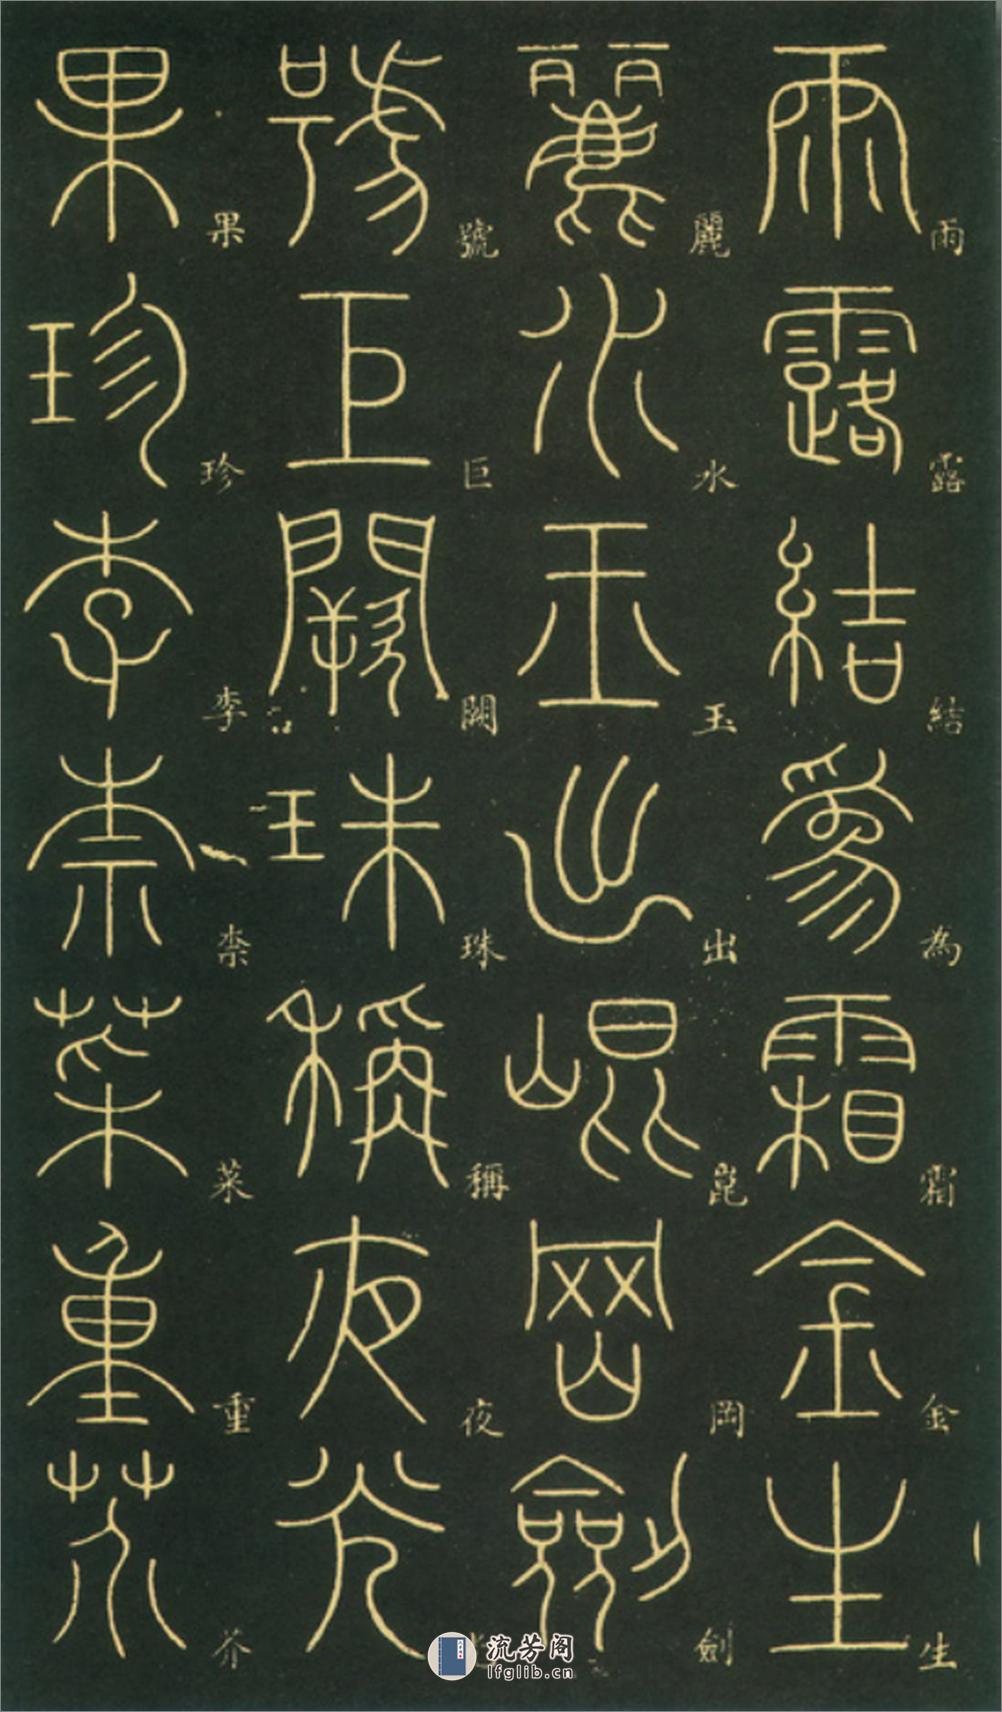 雨露結為霜金生
麗水玉出崑岡劍
號巨闕珠稱夜光
果珍李柰菜重芥
流芳阁
lfglib.cn